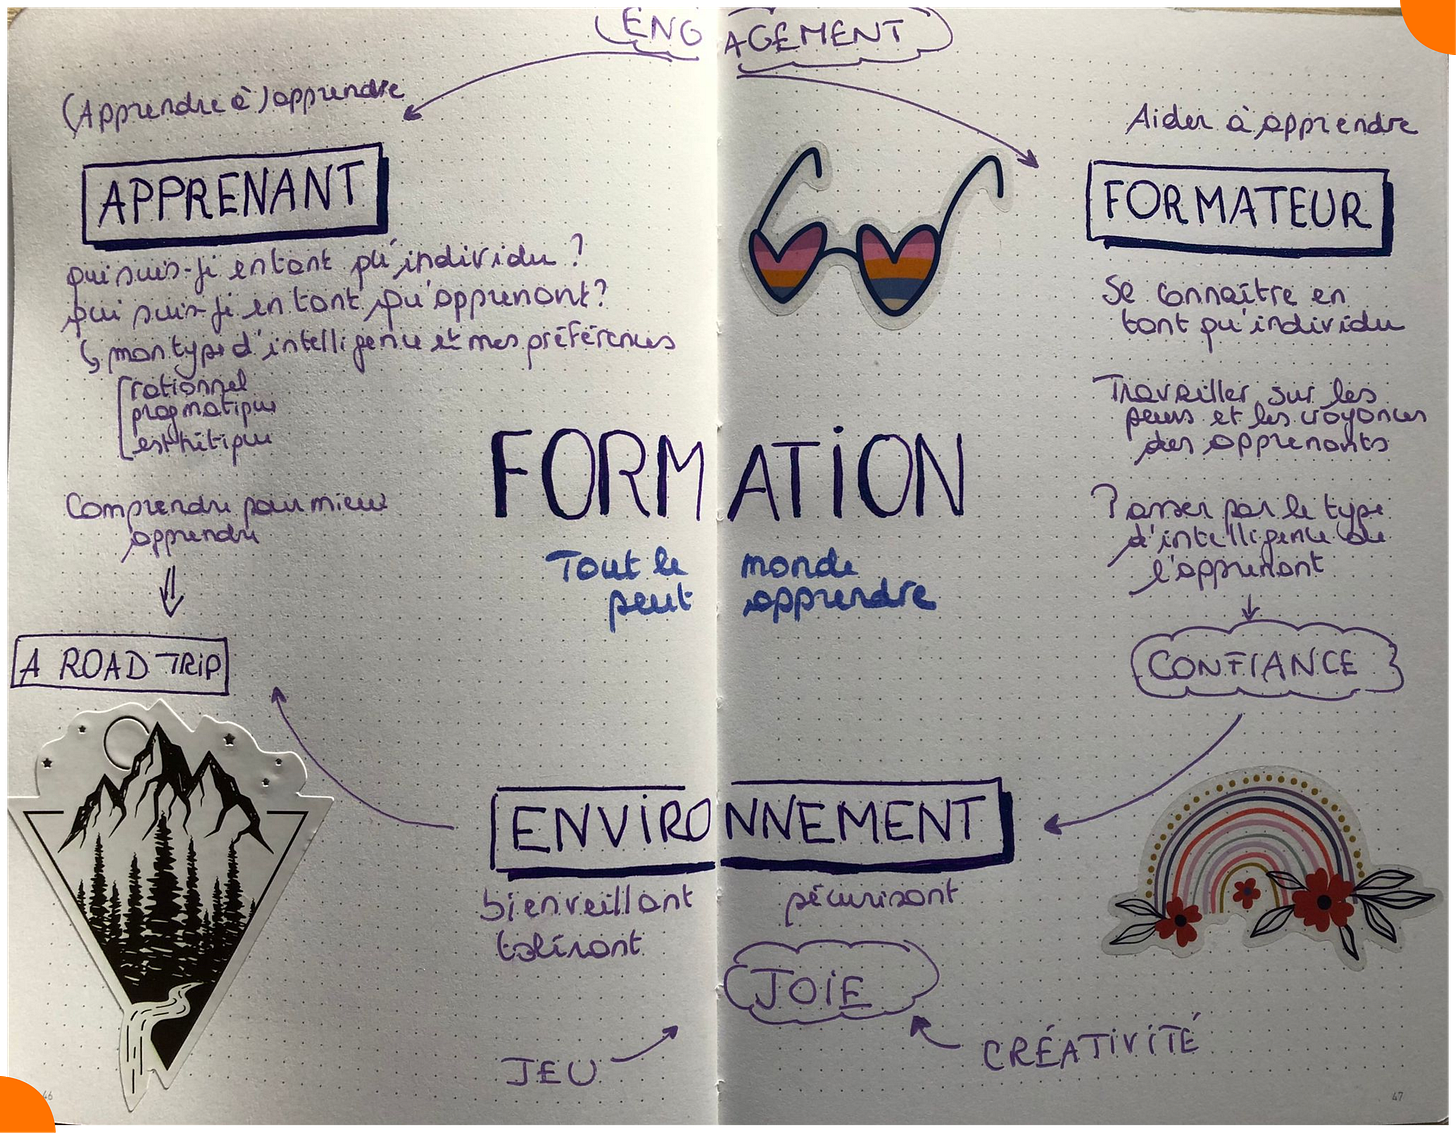 ENGAGEMENT
(Apprendre à) apprendre
APPRENANT
qui suis-je en tant qu'individu ?
qui suis-je en tant qu'apprenant ?
↳ mon type d'intelligence et mes préférences
rationnel
pragmatique
esthétique
Comprendre pour mieux
apprendre
A ROAD TRIP
Aider à apprendre
FORMATEUR
Se connaître en
tant qu'individu
Travailler sur les
peurs et les croyances
des apprenants
Passer par le type
d'intelligence de
l'apprenant
CONFIANCE
FORMATION
Tout le monde
peut apprendre
ENVIRONNEMENT
bienveillant sécurisant
tolérant
JOIE
JEU
CRÉATIVITÉ
46
47